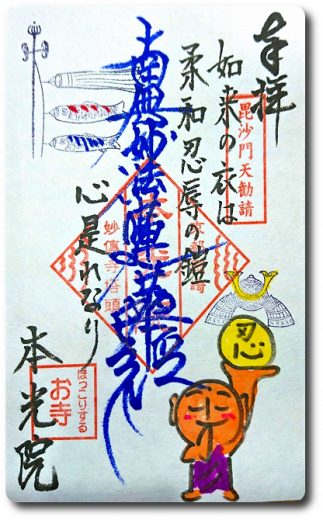 奉拝
毘沙門天勧請
如来の衣は
柔和忍辱の鎧
心是れなり
南無妙法蓮華経
妙傳寺塔頭
本光院
ほっこりする
お寺
忍